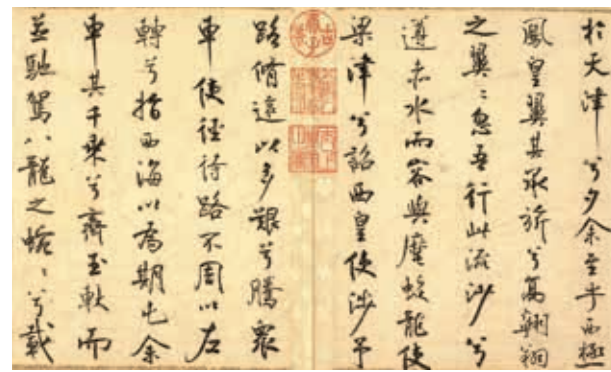 於天津兮夕余至乎西極
鳳皇翼其承旂兮高翱翔
之翼〻忽吾行此流沙兮
遵赤水而容與麾蛟龍使
梁津兮詔西皇使涉予
路脩遠以多艱兮騰衆
車使徑待路不周以左
轉兮指西海以爲期屯余
車其千乘兮齊玉軑而
並馳駕八龍之蜿〻兮載